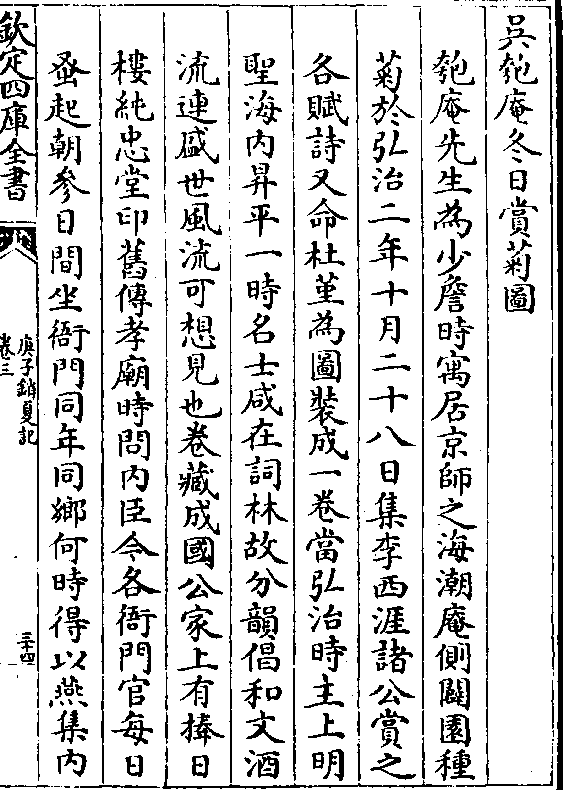 吳匏庵冬日賞菊圖
匏庵先生為少詹時寓居京師之海潮庵側闢園種
菊於弘治二年十月二十八日集李西涯諸公賞之
各賦詩又命杜堇為圖裝成一卷當弘治時主上明
聖海内昇平一時名士咸在詞林故分韻倡和文酒
流連盛世風流可想見也卷藏成國公家上有捧日
樓純忠堂印舊傳孝廟時問内臣令各衙門官每日
蚤起朝參日間坐衙門同年同鄉何時得以燕集内
欽定四庫全書
庚子銷夏記
卷三
三十四